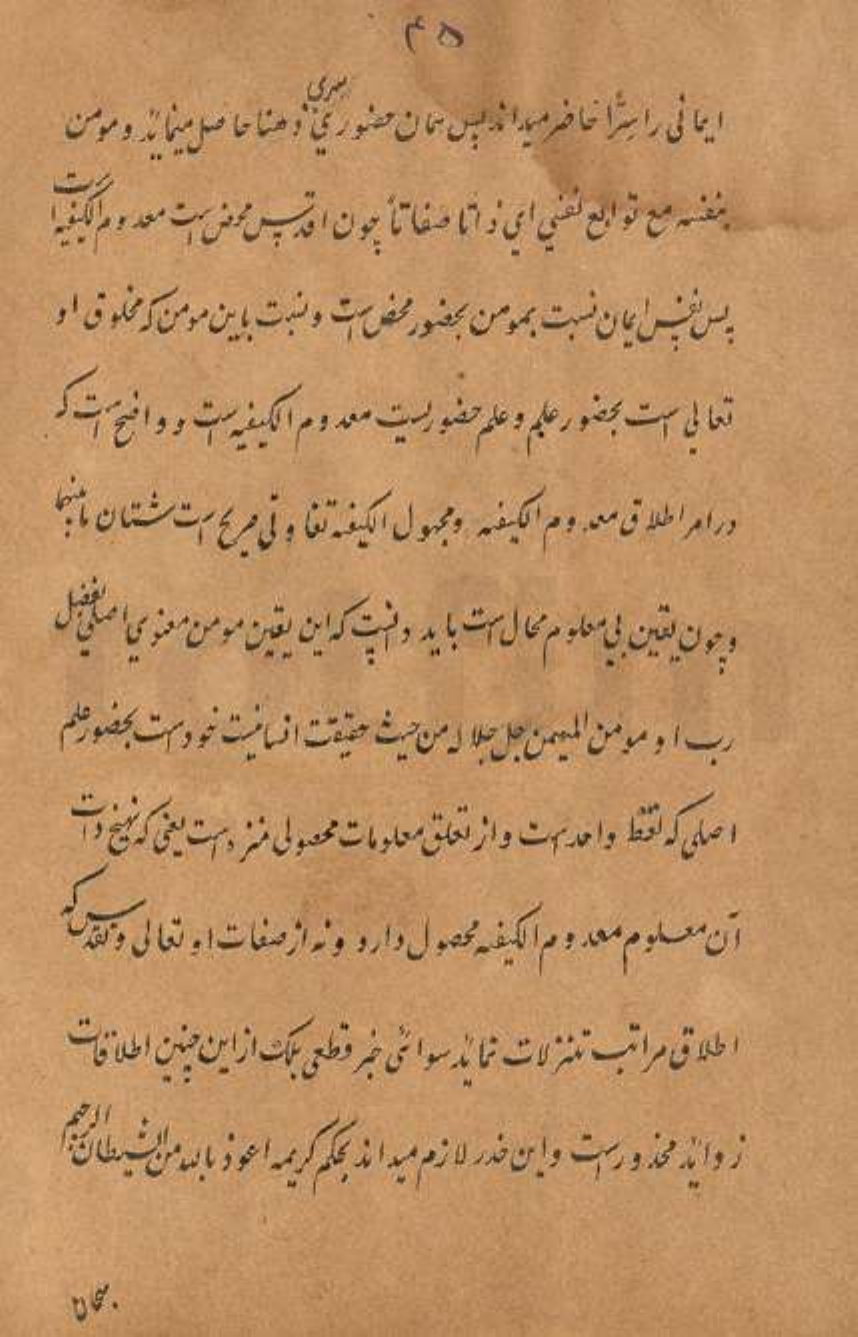 ۴۵
ایمانی را سِرًّا حاضر میداند پس همان حضوری سری ذهنا حاصل مینماید و مومن
بنفسه مع توابع نفسی ای ذاتا صفاتاً چون اقدس محض است معدوم الکیفیه است
پس نفس ایمان نسبت بمومن بحضور محض است و نسبت باین مومن که مخلوق او
تعالی است بحضور علم و علم حضوریست معدوم الکیفیه است و واضح است که
در امر اطلاق معدوم الکیفیه و مجهول الکیفیه تفاوتی صریح است شتان ما بینهما
و چون یقین بی معلوم محال است باید دانست که این یقین مومن معنوی اصلی بفضل
رب او مومن المهیمن جل جلاله من حیث حقیقت انسانیت خود است بحضور علم
اصلی که فقط واحد است و از تعلق معلومات محصولی منزه است یعنی که نه هیچ ذات
آن معلوم معدوم الکیفیه محصول دارد و نه از صفات او تعالی و تقدس که
اطلاق مراتب تنزلات نماید سوائی خبر قطعی بلک از این چنین اطلاقات
زواید محذور است و این حذر لازم میداند بحکم کریمه اعوذ بالله من الشیطان الرجیم
سبحان